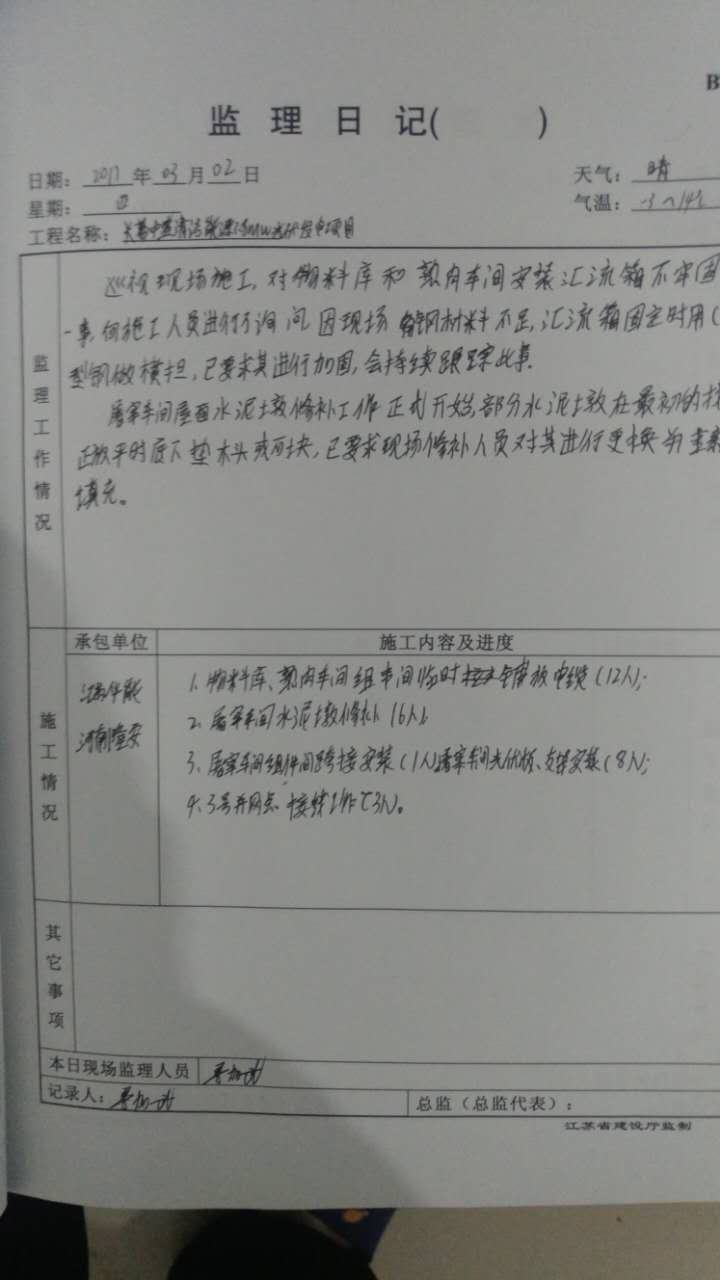 B
监理日记( )
日期：2017年03月02日 天气：晴
星期：四 气温：-3~14℃
工程名称：
监理工作情况
巡视现场施工,对物料库和 车间安装汇流箱不牢固
一事,向施工人员进行了询问,因现场 钢材料不足,汇流箱固定时用
型钢做横担,已要求其进行加固,会持续跟踪此事.
屠宰车间屋面水泥墩修补工作正式开始,部分水泥墩在最初的
正放平时底下垫木头或砖块,已要求现场修补人员对其进行更换并重新
填充。
承包单位 施工内容及进度
施工情况
1. 物料库、 车间组车间临时 放电缆(12人);
2. 屠宰车间水泥墩修补 16人;
3. 屠宰车间组件间跨接安装(1人)屠宰车间光伏板、支架安装(8人);
4. 3号并网点 接线工作(3人)。
其它事项
本日现场监理人员
记录人： 总监（总监代表）：
江苏省建设厅监制